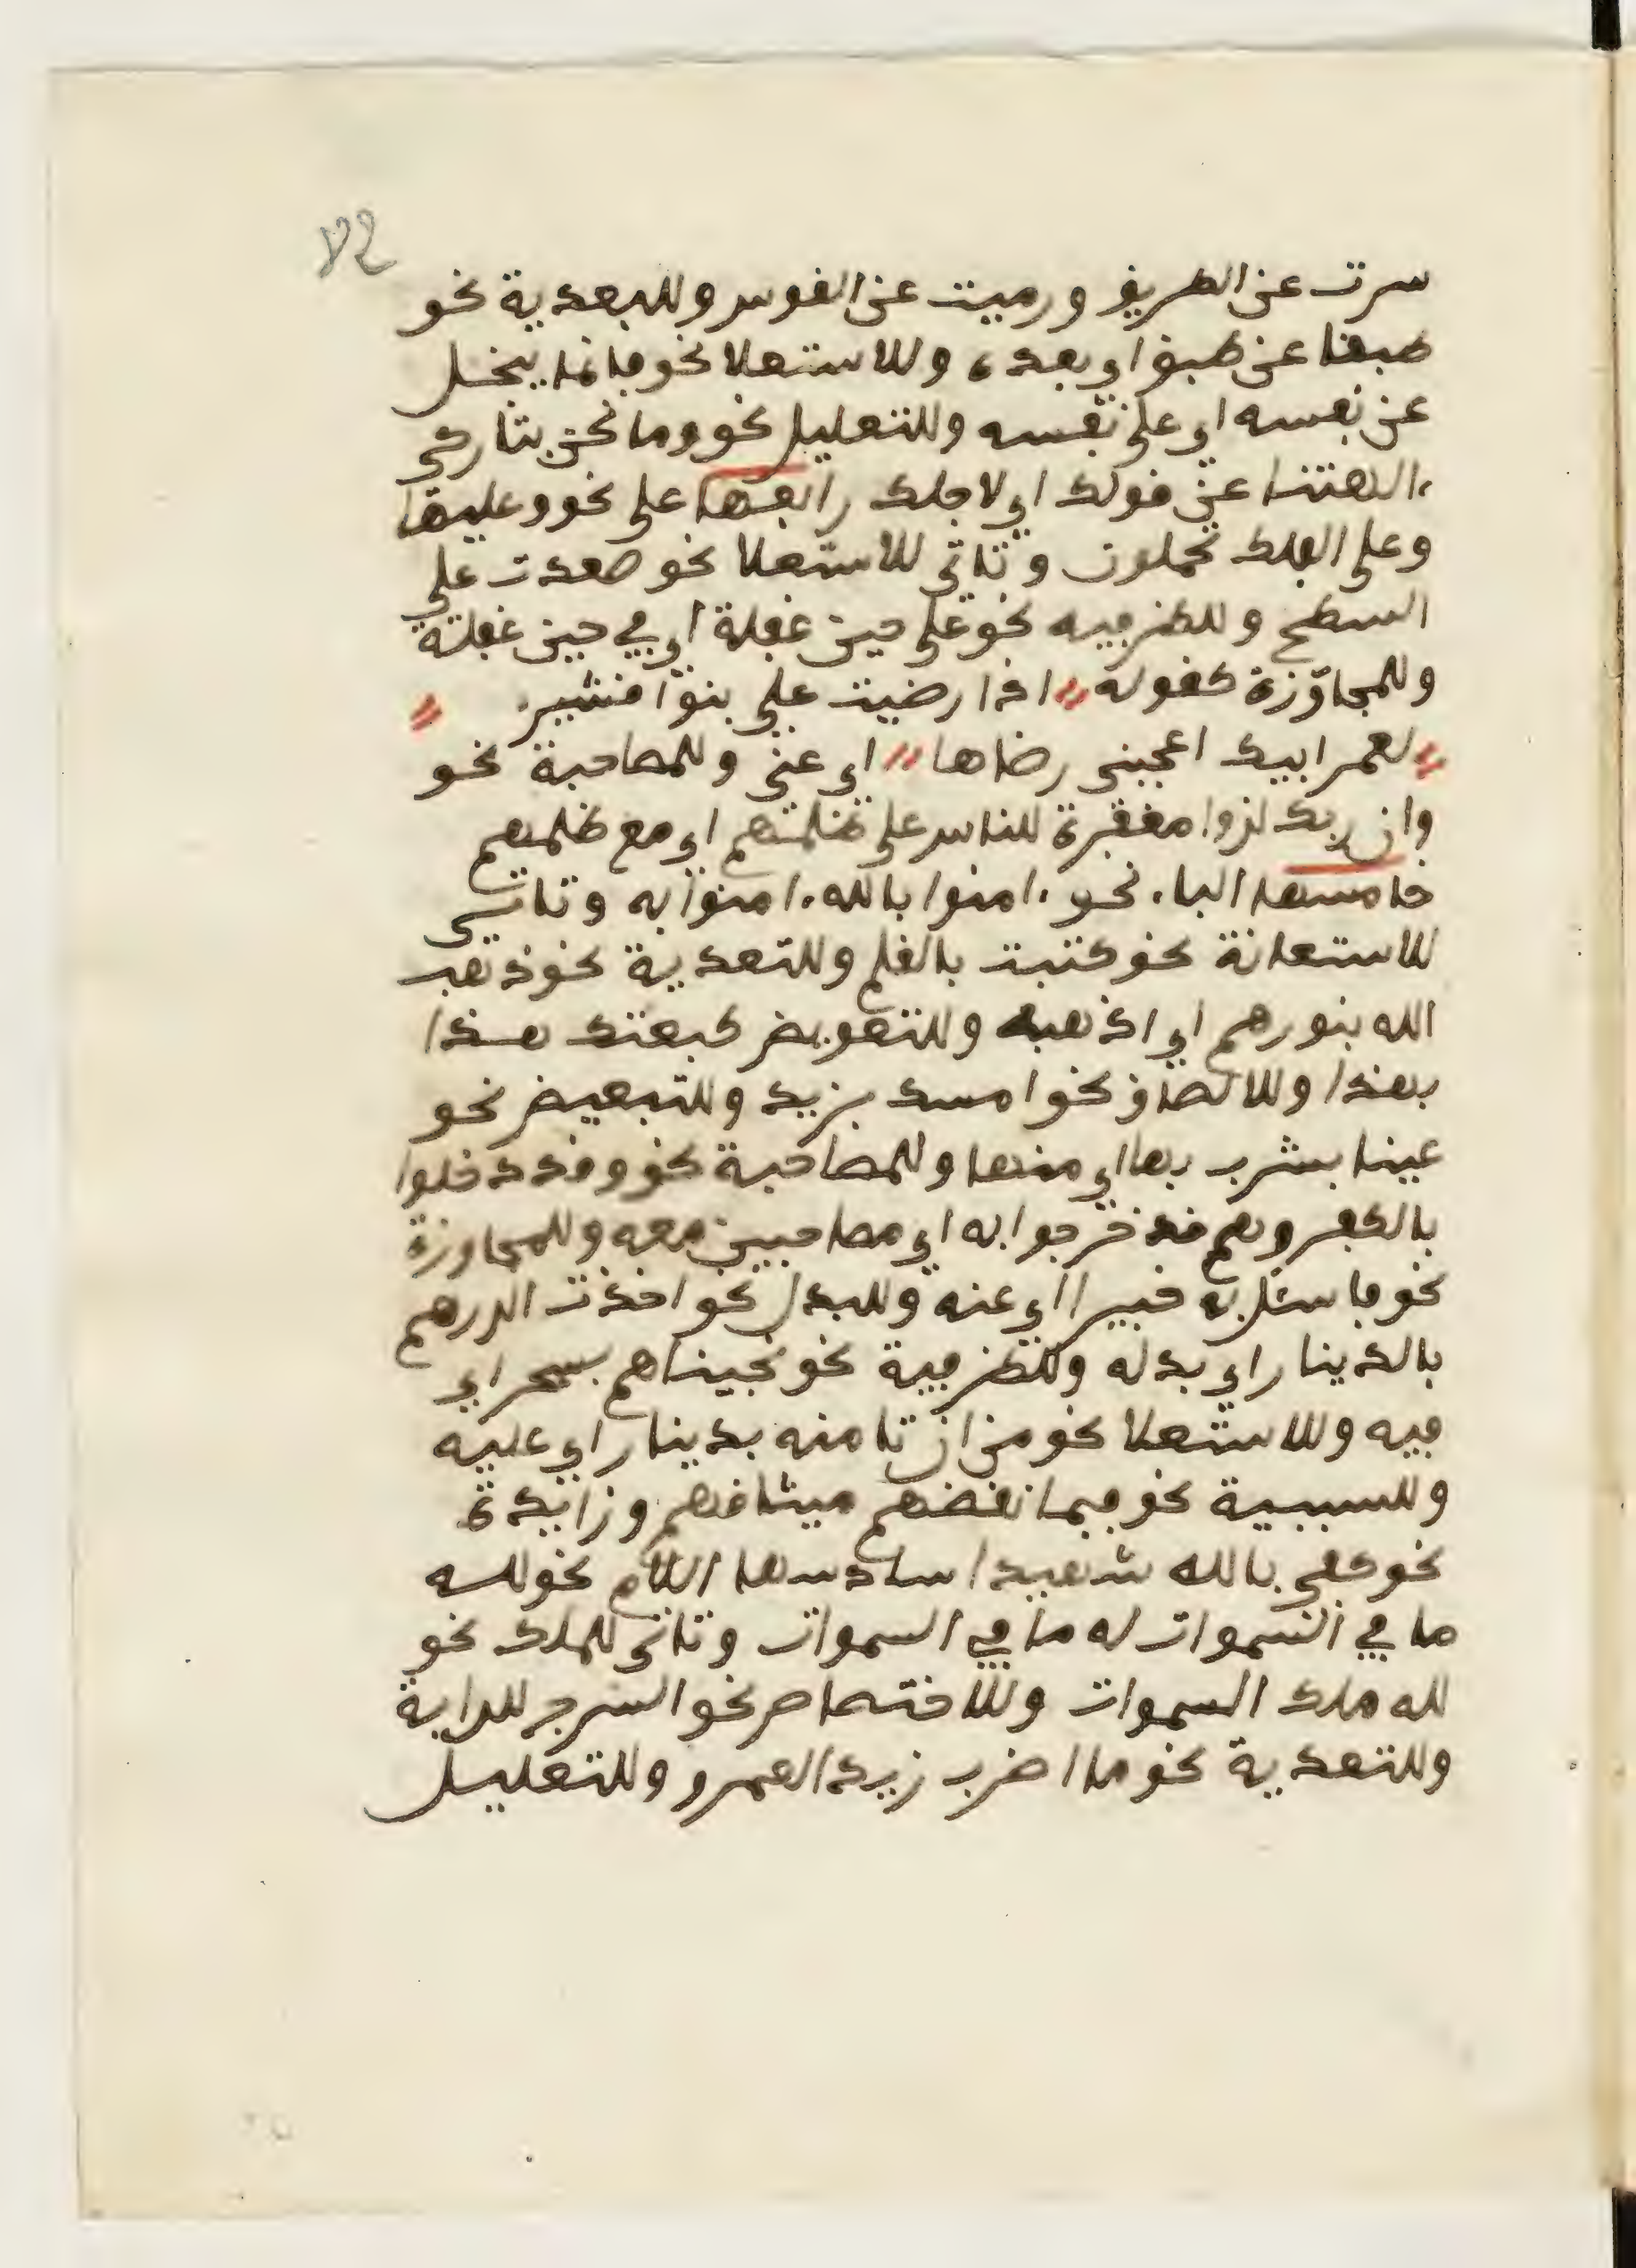 ٧٢
سرت عن الطريق ورميت عن القوس وللبعدية نحو
طبقا عن طبق اي بعده وللاستعلا نحو فانما يبخل
عن نفسه اي على نفسه وللتعليل نحو وما نحن بتاركي
ءالهتنا عن قولك اي لاجلك رابعها على نحو وعليها
وعلى الفلك تحملون وتاتي للاستعلا نحو صعدت على
السطح وللظرفيه نحو على حين غفلة اي في حين غفلة
وللمجاوزة كقوله اذا رضيت علي بنوا قشير
لعمر ابيك اعجبني رضاها اي عني وللمصاحبة نحو
وان ربك لذوا مغفرة للناس على ظلمهم اي مع ظلمهم
خامسها الباء نحو ءامنوا بالله ءامنوا به وتاتي
للاستعانة نحو كتبت بالقلم وللتعدية نحو ذهب
الله بنورهم اي اذهبه وللتعويض كبعتك هذا
بهذا وللالصاق نحو امسك بزيد وللتبعيض نحو
عينا يشرب بها اي منها وللمصاحبة نحو وقد دخلوا
بالكفر وهم قد خرجوا به اي مصاحبين معه وللمجاوزة
نحو فاسئل به خبيرا اي عنه وللبدل نحو اخذت الدرهم
بالدينار اي بدله وللظرفية نحو نجيناهم بسحر اي
فيه وللاستعلا نحو من ان تامنه بدينار اي عليه
وللسببية نحو فبما نقضهم ميثاقهم وزايدة
نحو كفى بالله شهيدا سادسها اللام نحو لله
ما في السموات له ما في السموات وتاتي للملك نحو
لله ملك السموات وللاختصاص نحو السرج للداية
وللتعدية نحو ما اضرب زيدا لعمرو وللتعليل